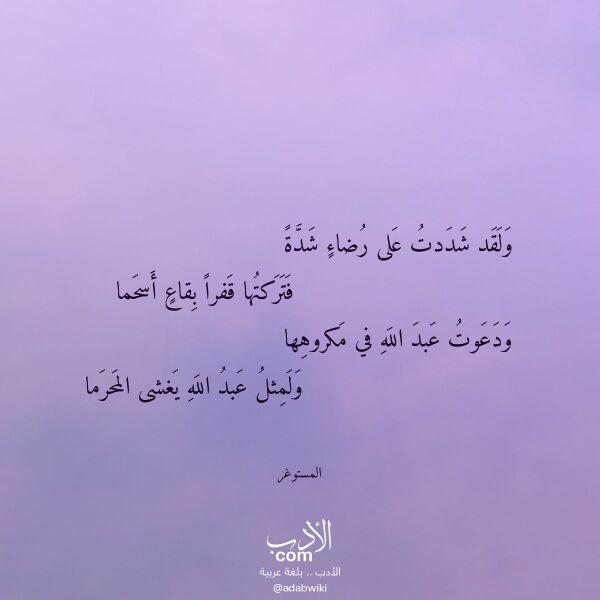 وَلَقَد شَدَدتُ عَلى رُضاءٍ شَدَّةً
فَتَرَكتُها قَفراً بِقاعٍ أَسحَما
وَدَعَوتُ عَبدَ اللَهِ في مَكروهِها
وَلَمِثلُ عَبدُ اللَهِ يَغشى المَحرَما
المستوغر
الأدب
com
الأدب .. بلغة عربية
@adabwiki